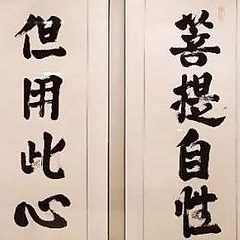 菩提自性
但用此心